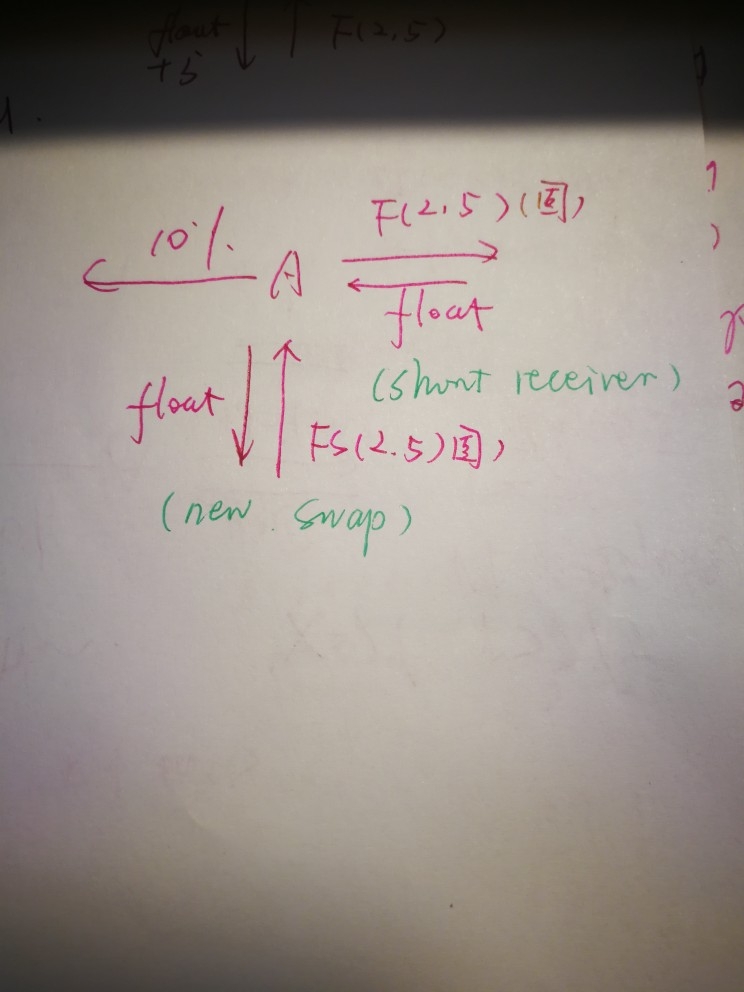 float F(2,5)
+5
1.
F(2,5)(固)
10%
A
float
(short receiver)
float
FS(2.5)固)
(new swap)